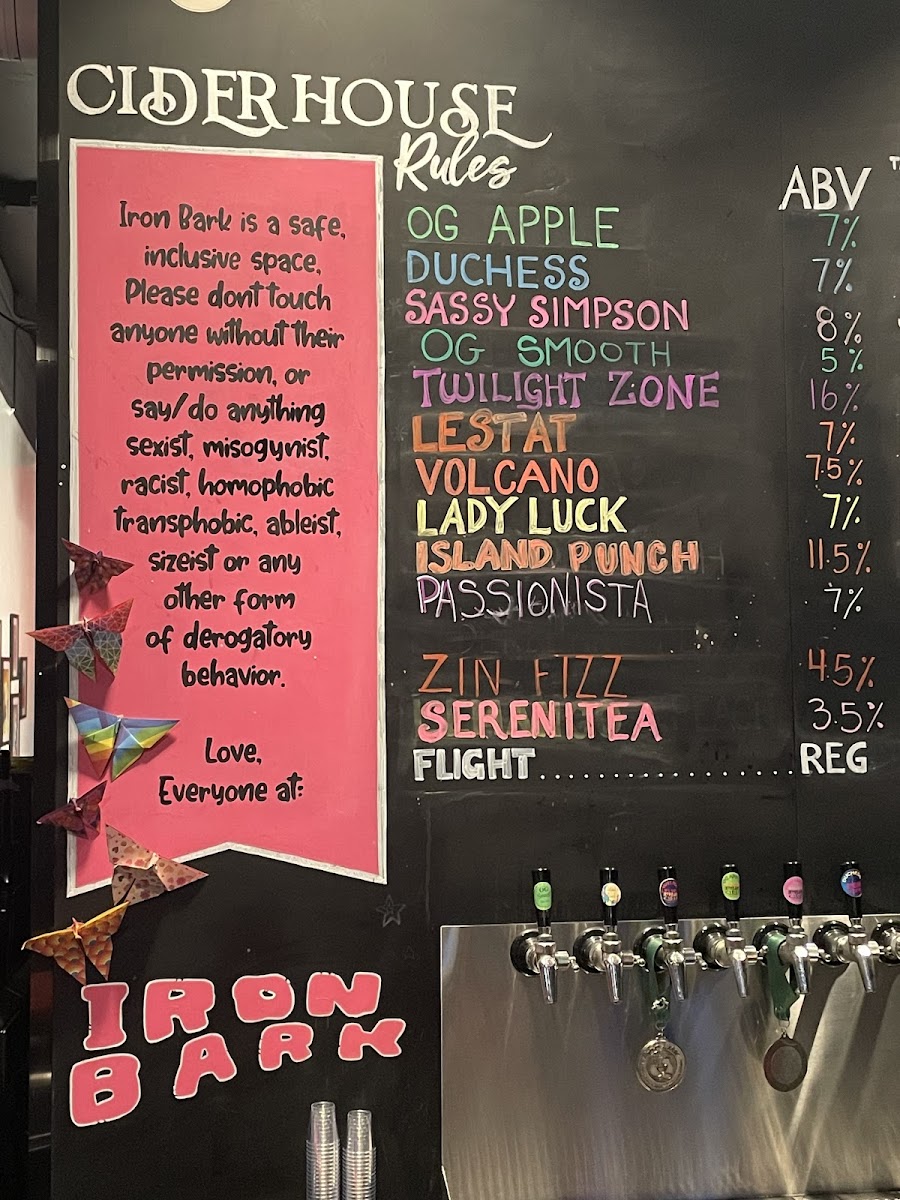 CIDER HOUSE
Rules
Iron Bark is a safe,
inclusive space,
Please dont touch
anyone without their
permission, or
say/do anything
sexist, misogynist,
racist, homophobic
transphobic, ableist,
sizeist or any
other form
of derogatory
behavior.
Love,
Everyone at:
IRON
BARK
ABV
OG APPLE 7%
DUCHESS 7%
SASSY SIMPSON 8%
OG SMOOTH 5%
TWILIGHT ZONE 16%
LESTAT 7%
VOLCANO 7.5%
LADY LUCK 7%
ISLAND PUNCH 11.5%
PASSIONISTA 7%
ZIN FIZZ 4.5%
SERENITEA 3.5%
FLIGHT.......................REG